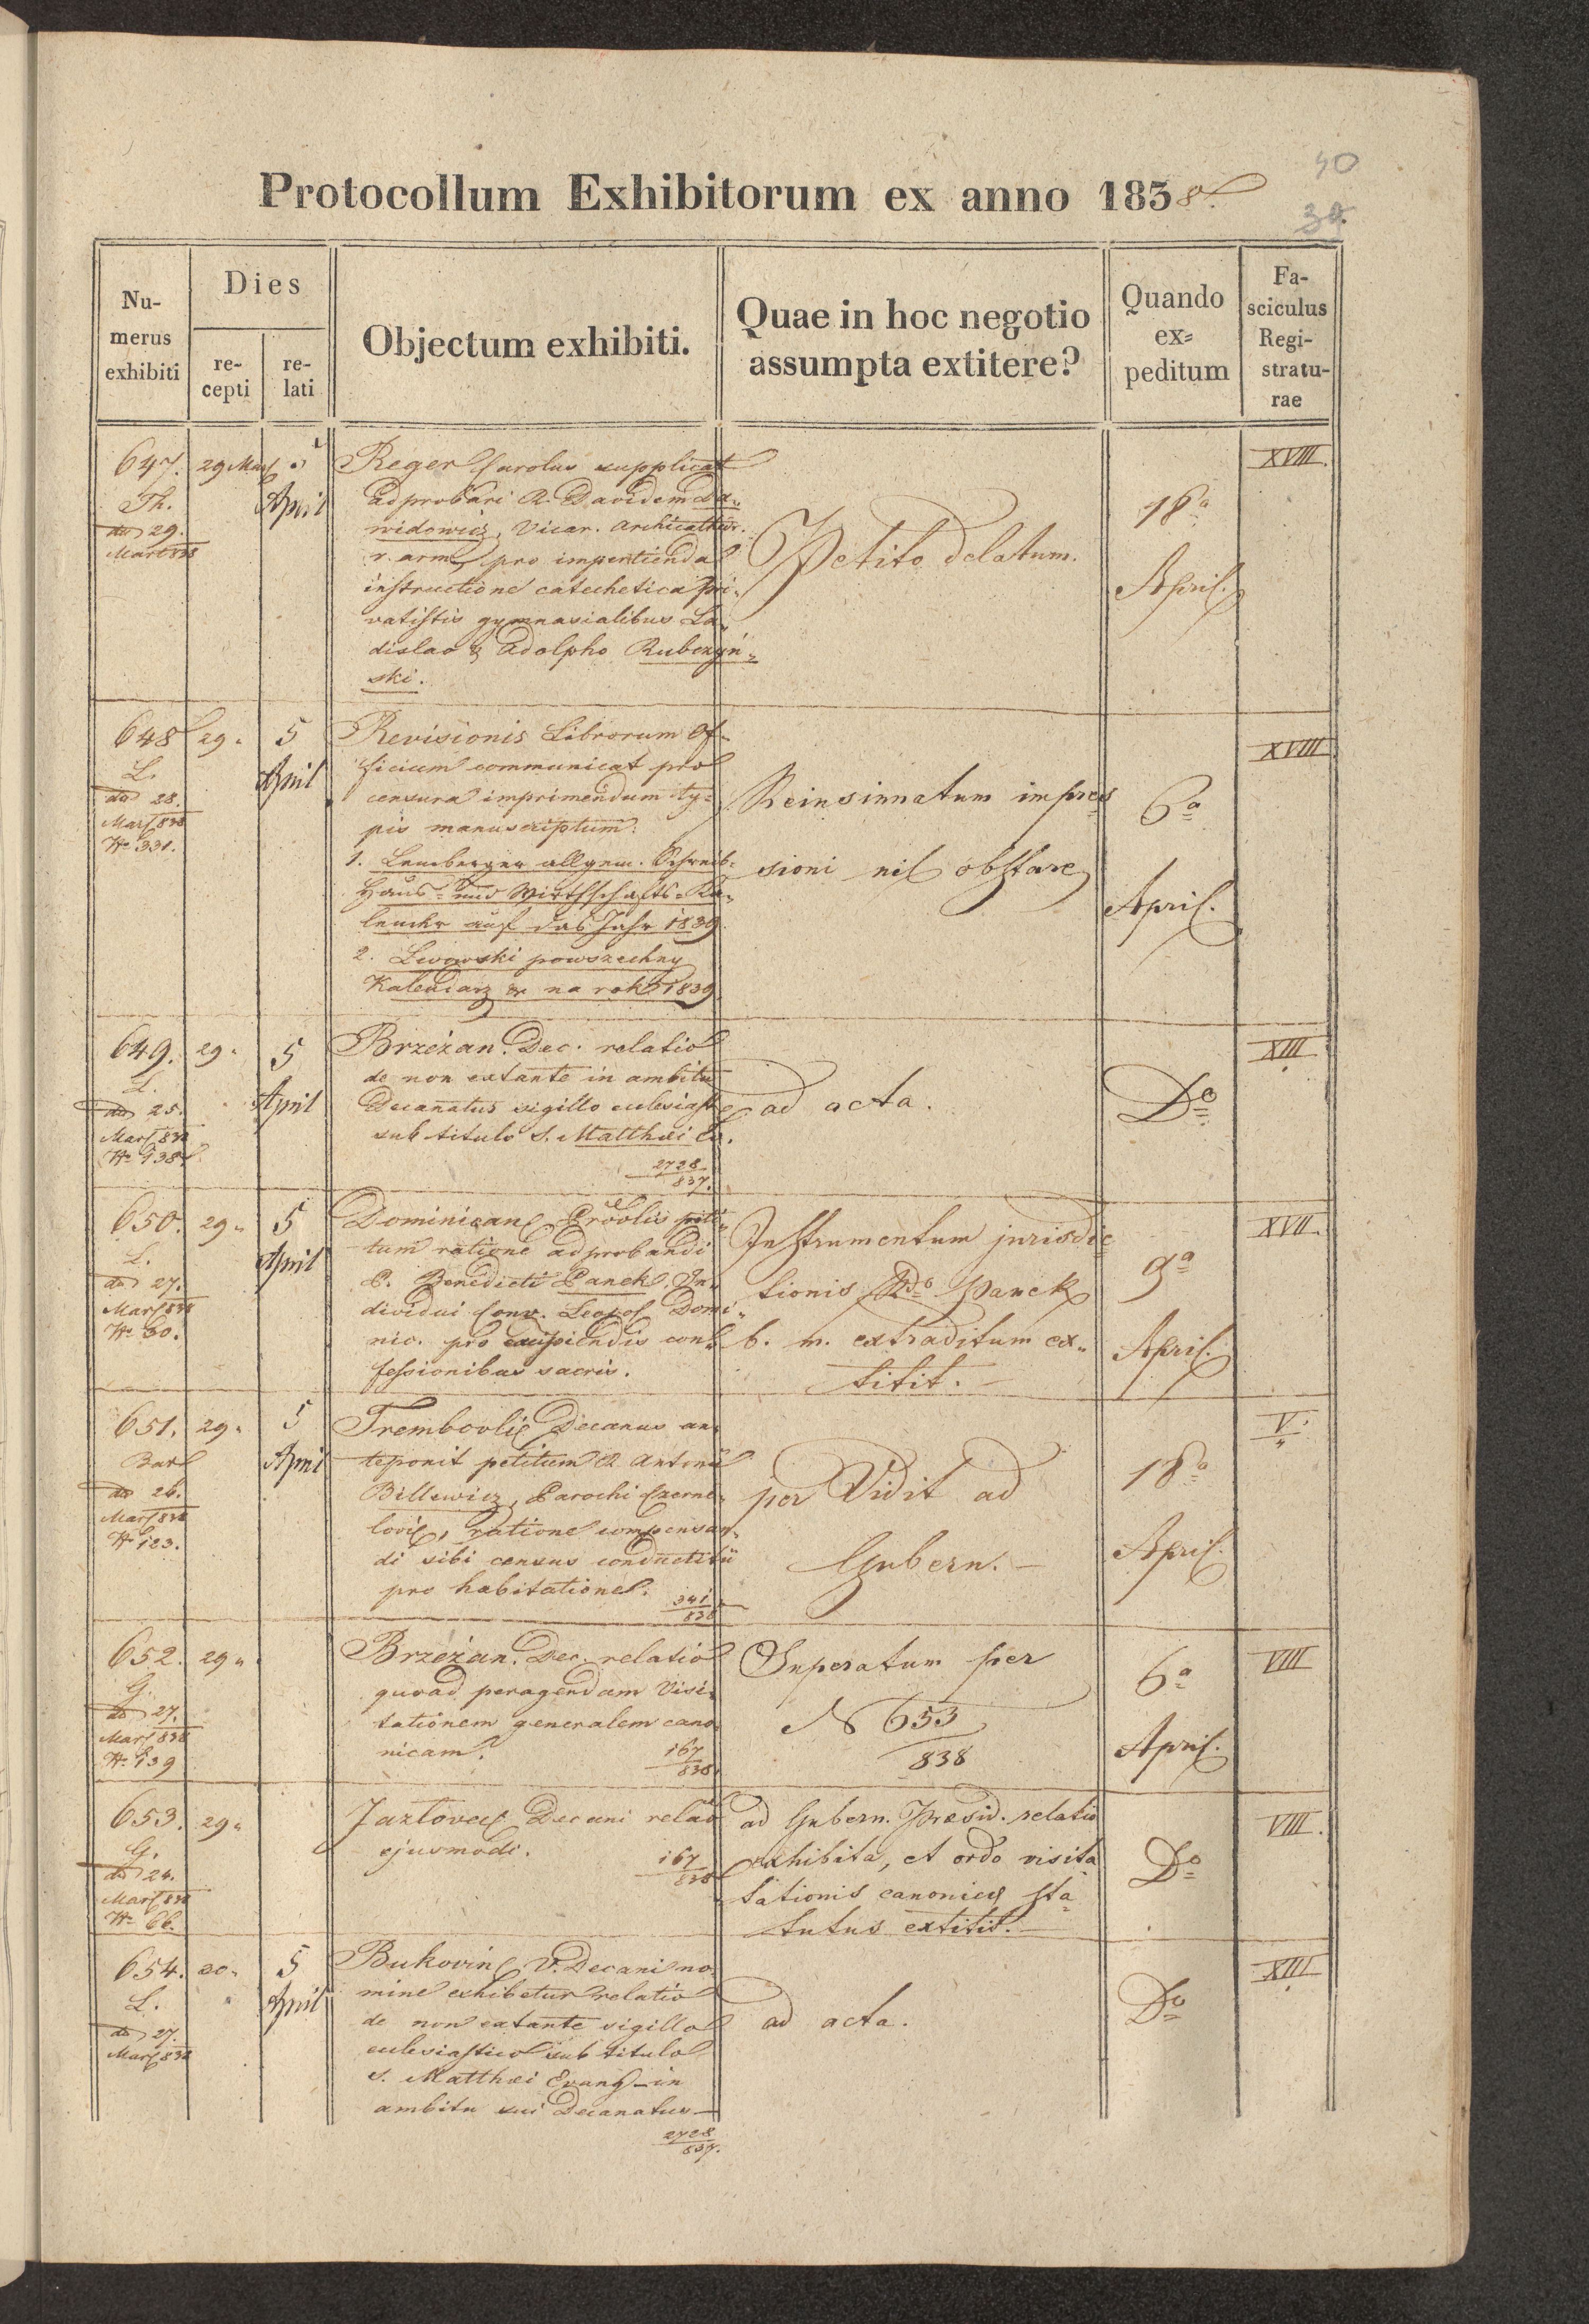 40
Protocollum Exhibitorum ex anno 1838.
Nu-
merus
exhibiti
Dies
re-
cepti
re-
lati
Objectum exhibiti.
Quae in hoc negotio
assumpta extitere?
Quando
ex-
peditum
Fa-
sciculus
Regi-
stratu-
rae
647.
Th.
do 29.
Mart 838
29 Mart
5
April
Reger Carolus supplicat
adprobari R. Davidem Da-
widowicz, Vicar. Archicathedr.
r. arm. pro impertienda
instructione catechetica pri-
vatistis gymnasialibus La-
dislao & Adolpho Rubczyń-
ski.
Petito delatum.
18a
April.
XVIII.
648
L.
do 28.
Mart 838
No 331.
29
5
April
Revisionis Librorum Of-
ficium communicat pro
censura imprimendum ty-
pis manuscriptum:
1. Lemberger allgem. Schreib-
Haus- und Wirthschafts-Ka-
lender auf das Jahr 1839
2. Lwowski powszechny
Kalendarz & na rok 1839.
Reinsinuatum impres
sioni nil obstare
6a
April.
XVIII
649.
L.
do 25.
Mart 838
No 138
29
5
April
Brzeżan. Dec. relatio
de non extante in ambitu
Decanatus sigillo ecclesiast
sub titulo S. Matthæi Ev.
2728
837.
ad acta.
Do
XIII
650.
L.
do 27.
Mart 838
No 60.
29
5
April
Dominican. Provlis peti-
tum ratione adprobandi
P. Benedicti Panek, In-
dividui Conv. Leopol Domi-
nic. pro excipiendis con-
fessionibus sacris.
Instrumentum jurisdic
tionis Rdo Panek
b. m. extraditum ex-
titit.
9a
April.
XVII
651.
Bar
do 26.
Mart 838
No 123.
29
5
April
Trembovlæ Decanus an-
teponit petitum R. Antonii
Billewicz, Parochi Czerne-
lovic, ratione compensan-
di sibi census conductitii
pro habitatione.
341
838
per Vidit ad
Gubern.
18a
April.
V.
652.
G.
do 27.
Mart 838
No 139
29
Brzeżan. Dec. relatio
quoad peragendam Visi-
tationem generalem cano-
nicam.
167
838
Superatum per
N 653
838
6a
April.
VIII
653.
G.
do 24.
Mart 838
No 66.
29
Jazłovec Decani relao
ejusmodi.
167
838
ad Gubern. Præsid. relatio
exhibita, et ordo visita
tationis canonicæ sta-
tutus extitit.
Do
VIII.
654.
L.
do 27.
Mart 838
30
5
April
Bukovin. V. Decani no-
mine exhibetur relatio
de non extante sigillo
ecclesiastico sub titulo
S. Matthæi Evang. in
ambitu sui Decanatus
2728
837.
ad acta.
Do
XIII